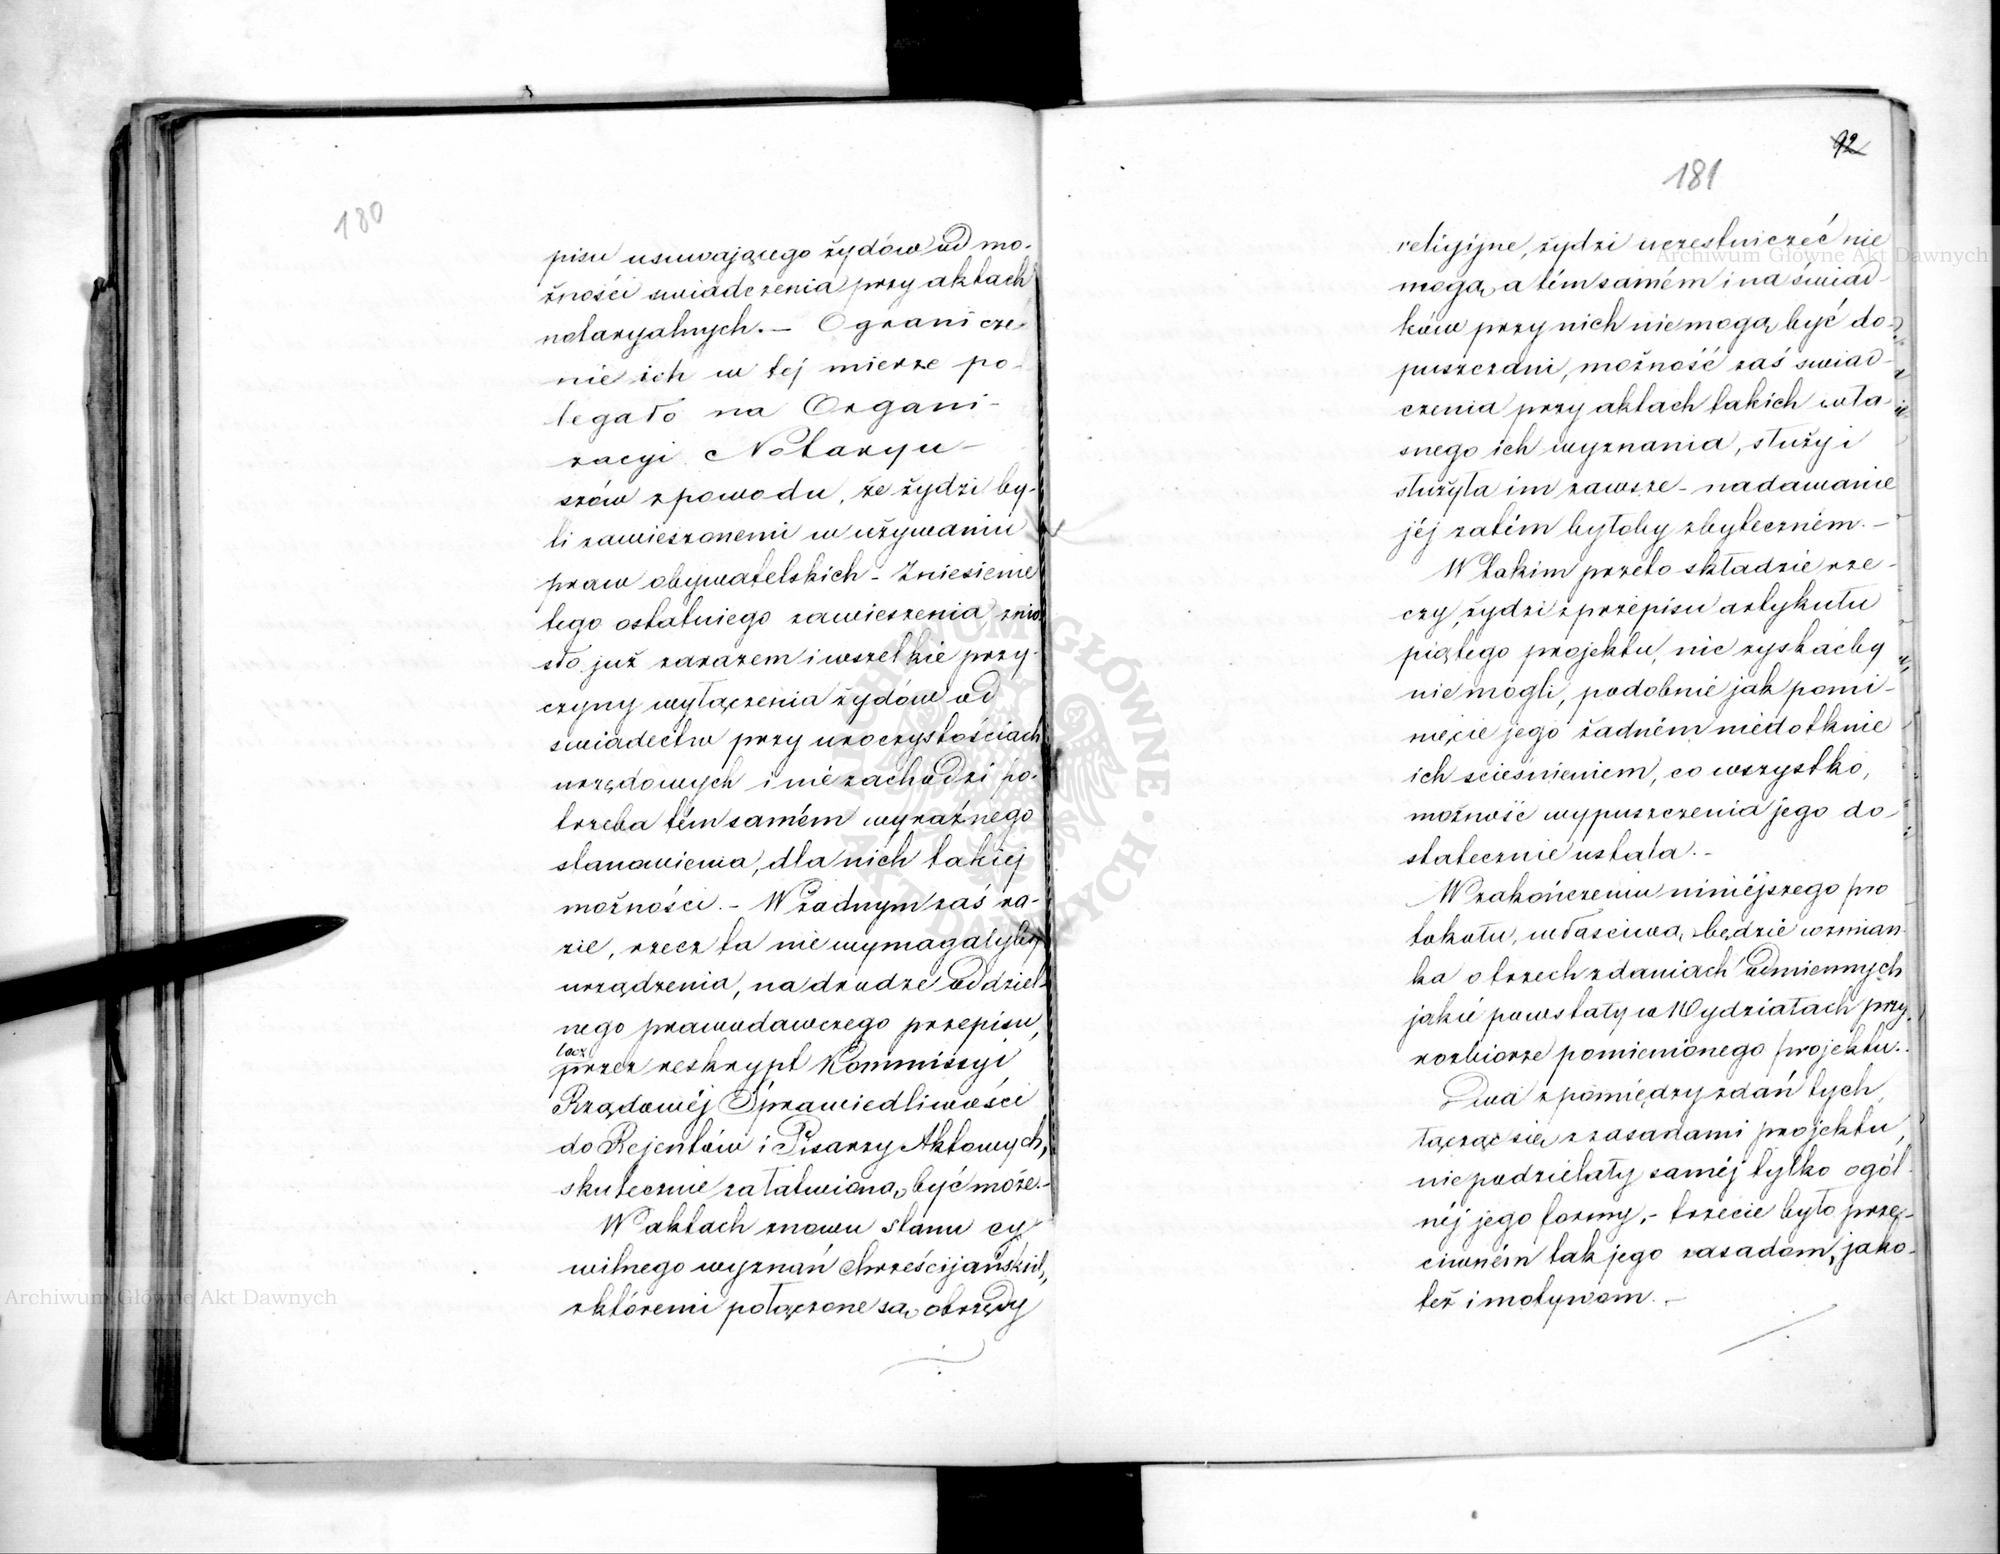 180
pisu usuwającego żydów od mo-
żności swiadczenia przy aktach
notaryalnych. — Ogranicze-
nie ich w tej mierze po-
legało na Organi-
zacyi Notaryu-
szów z powodu, że żydzi by-
li zawieszonemi w używaniu
praw obywatelskich – Zniesienie
tego ostatniego zawieszenia znio-
sło już zarazem i wszelkie przy-
czyny wyłączenia żydów od
swiadectw przy uroczystościach
urzędowych i nie zachodzi po-
trzeba tém samém wyraźnego
stanowienia, dla nich takiej
możności. – W żadnym zaś ra-
zie, rzecz ta nie wymagałyby
urządzenia, na drodze oddziel-
nego prawodawczego przepisu,
lecz
przez reskrypt Kommissyi
Rządowéj Sprawiedliwości
do Rejentów i Pisarzy Aktowych,
skutecznie załatwioną być może. –
W aktach znowu stanu cy-
wilnego wyznań chrześcijańskich,
z któremi połączone są obrzędy
92
181
religijne, żydzi uczestniczeć nie
mogą, a tém samém i na świad-
ków przy nich nie mogą być do-
puszczani, możność zaś swiad-
czenia przy aktach takich wła-
snego ich wyznania, służy i
służyła im zawsze – nadawanie
jéj zatém byłoby zbyteczném. –
W takim przeto składzie rze-
czy, żydzi z przepisu artykułu
piątego projektu, nic zyskaćby
nie mogli, podobnie jak pomi-
nięcie jego żadném niedotknie
ich scieśnieniem, co wszystko,
możność wypuszczenia jego do-
statecznie ustala. –
W zakończeniu niniéjszego pro
tokołu, właściwą będzie wzmian-
ka o trzech zdaniach odmiennych
jakie powstały w Wydziałach przy
rozbiorze pomienionego projektu. –
Dwa z pomiędzy zdań tych,
łącząc się z zasadami projektu,
nie podzielały saméj tylko ogól-
néj jego formy, – trzecie było prze-
ciwném tak jego zasadom, jako-
też i motywom. –
Archiwum Główne Akt Dawnych
Archiwum Główne Akt Dawnych
ARCHIWUM GŁÓWNE AKT DAWNYCH